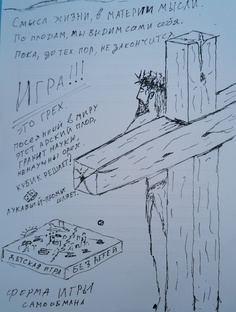 Смысл жизни, в материи мысли.
По плодам, мы видим сами себя.
Пока, до тех пор, не закончится
ИГРА!!!
ЭТО ГРЕХ.
посеянный в миру
этот адский плод,
гранит науки,
кубик решает?
лукавый-промы
шляет.
ДЕТСКАЯ ИГРА
БЕЗ ДЕТЕЙ
ФЕРМА ИГРЫ
САМООБМАНА